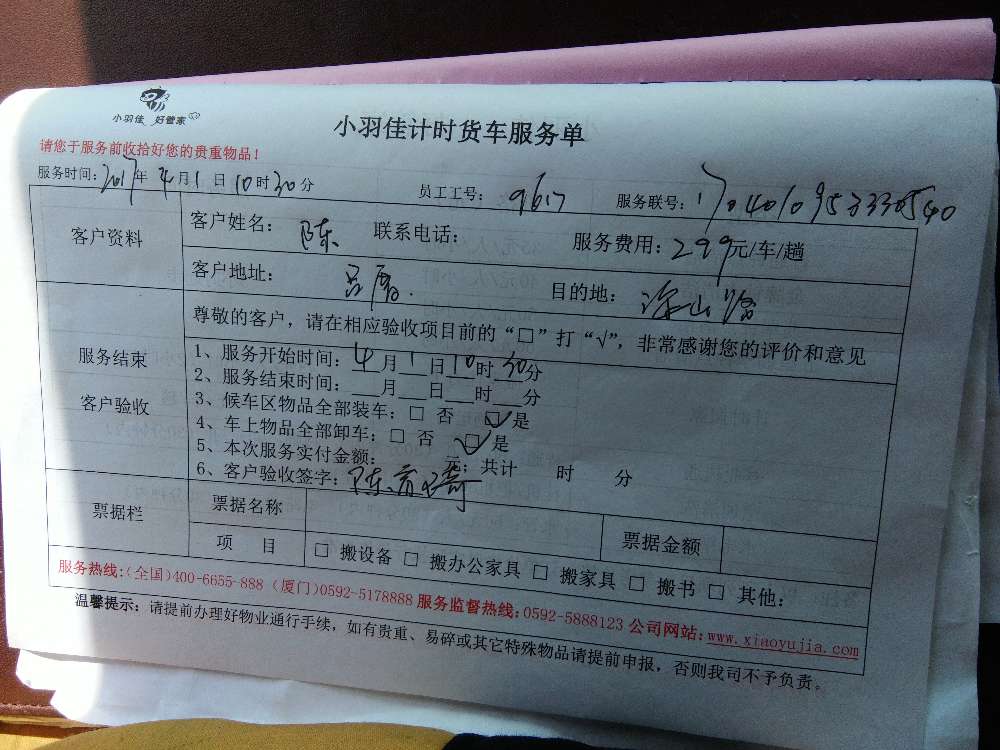 小羽佳 好管家
小羽佳计时货车服务单
请您于服务前收拾好您的贵重物品！
服务时间：2017年4月1日10时30分 员工工号：9617 服务联号：
客户资料 客户姓名：陈 联系电话： 服务费用：299元/车/趟
客户地址：吕厝. 目的地：
尊敬的客户，请在相应验收项目前的“□”打“√”，非常感谢您的评价和意见
服务结束
客户验收
1、服务开始时间：4月1日10时30分
2、服务结束时间：___月___日___时___分
3、候车区物品全部装车：□ 否 ☑是
4、车上物品全部卸车：□ 否 ☑是
5、本次服务实付金额：______元；共计 时 分
6、客户验收签字：陈
票据栏 票据名称 票据金额
项 目 □ 搬设备 □ 搬办公家具 □ 搬家具 □ 搬书 □ 其他：
服务热线:(全国)400-6655-888 (厦门)0592-5178888 服务监督热线:0592-5888123 公司网站:www.xiaoyujia.com
温馨提示：请提前办理好物业通行手续，如有贵重、易碎或其它特殊物品请提前申报，否则我司不予负责。